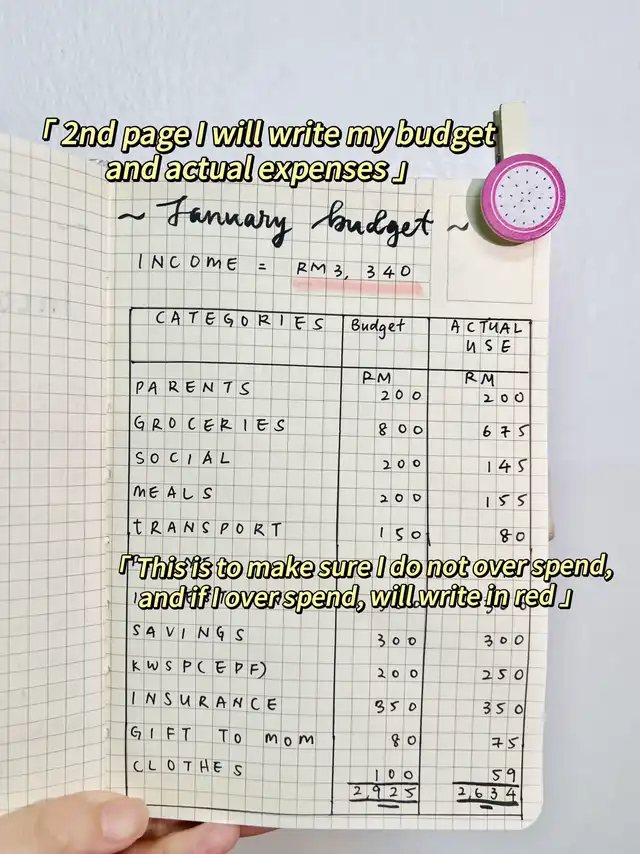 「 2nd page I will write my budget
and actual expenses 」
~ January budget ~
INCOME = RM3, 340
CATEGORIES Budget ACTUAL USE
RM RM
PARENTS 200 200
GROCERIES 800 675
SOCIAL 200 145
MEALS 200 155
tRANSPORT 150 80
「 This is to make sure I do not over spend,
and if I over spend, will write in red 」
SAVINGS 300 300
KWSP(EPF) 200 250
INSURANCE 350 350
GIFT TO MOM 80 75
CLOTHES 100 59
2,925 2,634